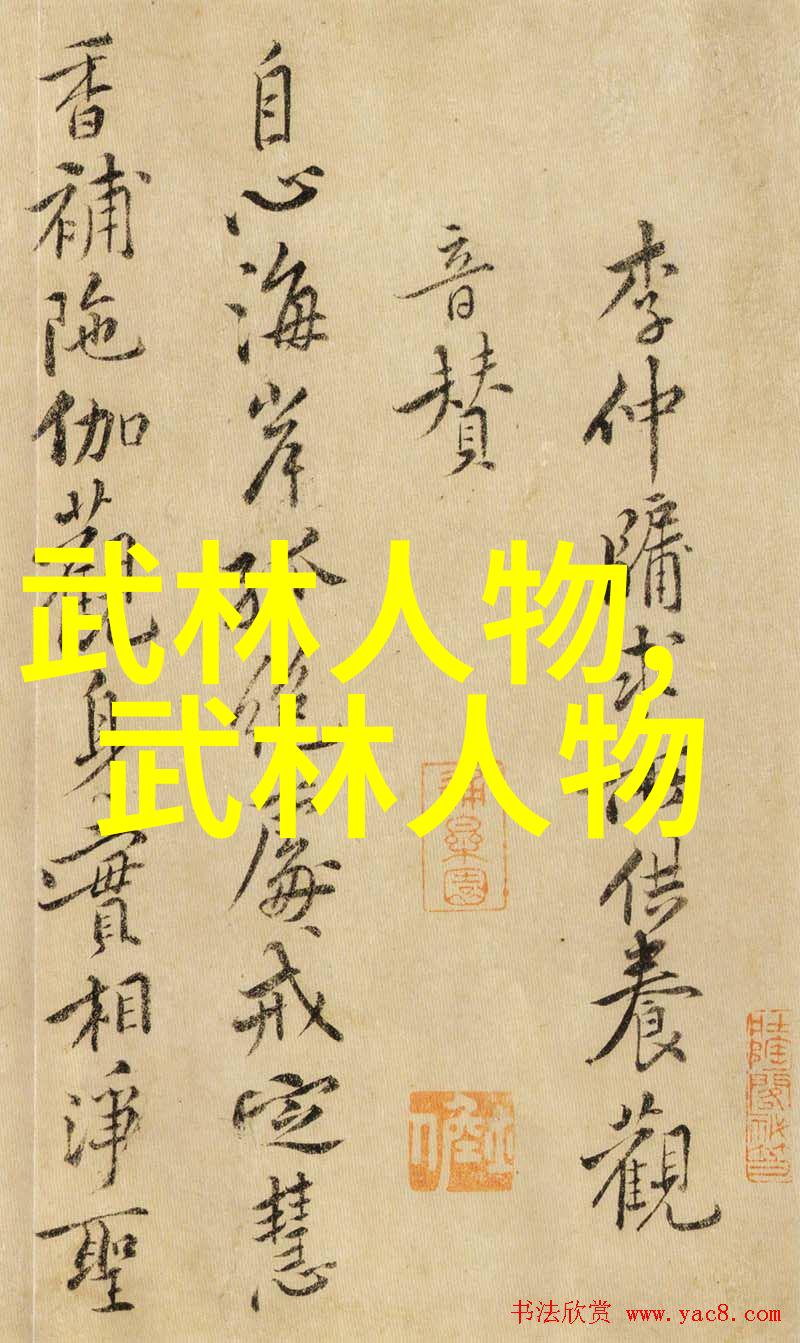 李仲牖求 供養觀
音賛
自心海岸孤絕處戒定慧
香補陁伽觀身實相淨聖
武林人物,
武林人物
书法欣赏 www.yac8.com